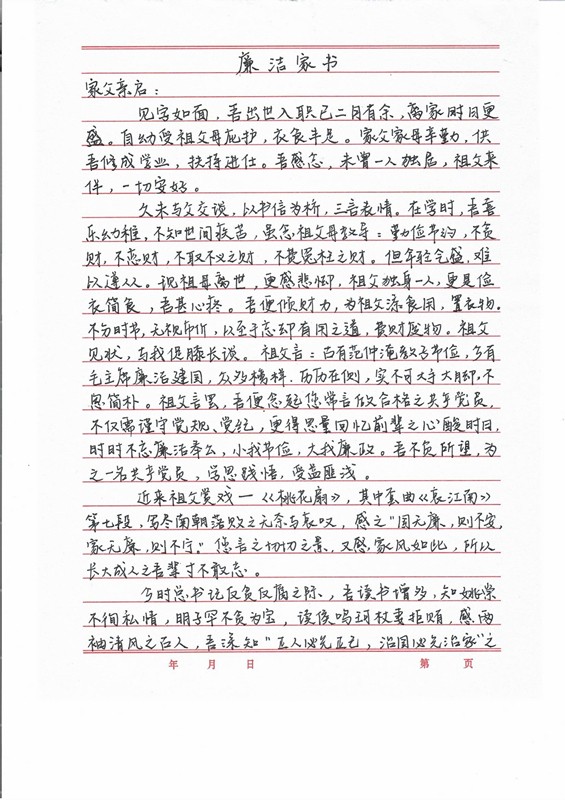 廉洁家书
家父亲启：
见字如面，吾出世入职已二月有余，离家时日更
盛。自幼受祖父母庇护，衣食丰足。家父家母辛勤，供
吾修成学业，扶持进仕。吾感念，未曾一人独居，祖父来
伴，一切安好。
久未与父交谈，以书信为桥，三言表情。在学时，吾喜
乐幼稚，不知世间疾苦，虽念祖父母教导：勤俭节约，不贪
财，不恋财，不取不义之财，不费冤枉之财。但年轻气盛，难
以遵从。现祖母离世，更感悲恸，祖父独身一人，更是俭
衣简食，吾甚心疼。吾便倾财力，为祖父添衣用，置衣物。
不分时节，无视市价，以至于忘却有用之道，费财废物。祖父
见状，与我促膝长谈。祖父言：古有范仲淹教子节俭，今有
毛主席廉洁建国，众多榜样，历历在侧，实不可大手大脚，不
思简朴。祖父言罢，吾便念起您常言做合格之共产党员，
不仅需谨守党规、党纪，更得思量回忆前辈之心酸时日，
时时不忘廉洁奉公，小我节俭，大我廉政。吾不负所望，为
之一名共产党员，学思践悟，受益匪浅。
近来祖父赏戏—《桃花扇》，其中套曲《哀江南》
第七段，写尽南朝落败之无奈与哀叹，感之“国无廉，则不安，
家无廉，则不宁。”您言之切切之景，又感家风如此，所以
长大成人之吾辈才不敢忘。
今时总书记反贪反腐之际，吾读书增多，知姚崇
不徇私情，明子罕不贪为宝，读侯鸣珂权妻拒贿，感两
袖清风之古人，吾深知“正人必先正己，治国必先治家”之
年 月 日
第 页